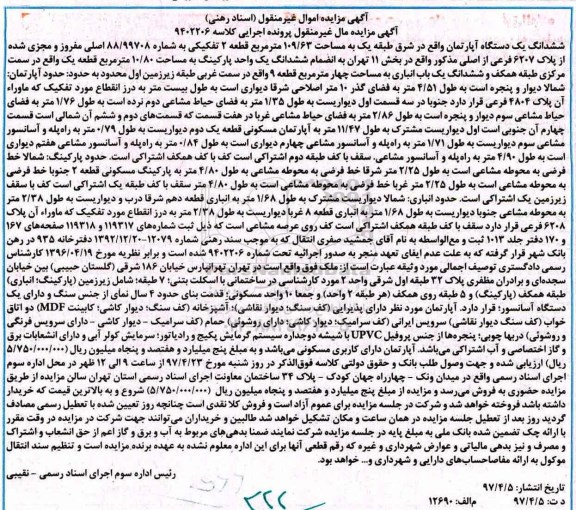 آگهی مزایده اموال غیرمنقول (اسناد رهنی)
آگهی مزایده مال غیرمنقول پرونده اجرایی کلاسه ۹۴۰۲۲۰۶
ششدانگ یک دستگاه آپارتمان واقع در شرق طبقه یک به مساحت ۱۰۹/۶۳ مترمربع قطعه ۲ تفکیکی به شماره ۸۸/۹۹۷۰۸ اصلی مفروز و مجزی شده
از پلاک ۶۲۰۷ فرعی از اصلی مذکور واقع در بخش ۱۱ تهران به انضمام ششدانگ یک واحد پارکینگ به مساحت ۱۰/۸۰ مترمربع قطعه یک واقع در سمت
مرکزی طبقه همکف و ششدانگ یک باب انباری به مساحت چهار مترمربع قطعه ۹ واقع در سمت غربی طبقه زیرزمین اول محدود به حدود: حدود آپارتمان:
شمالا دیوار و پنجره است به طول ۴/۵۱ متر به فضای گذر ۱۰ متر اصلاحی شرقا دیواری است به طول بیست متر به درز انقطاع مورد تفکیک که ماوراء
آن پلاک ۴۸۰۴ فرعی قرار دارد جنوبا در سه قسمت اول دیواریست به طول ۱/۳۵ متر به فضای حیاط مشاعی دوم نرده است به طول ۱/۷۶ متر به فضای
حیاط مشاعی سوم دیوار و پنجره است به طول ۲/۸۶ متر به فضای حیاط مشاعی غربا در هفت قسمت که قسمت‌های دوم و ششم آن شمالی است قسمت
چهارم آن جنوبی است اول دیواریست مشترک به طول ۱۱/۴۷ متر به آپارتمان مسکونی قطعه یک دوم دیواریست به طول ۰/۷۹ متر به راه‌پله و آسانسور
مشاعی سوم دیواریست به طول ۱/۷۱ متر به راه‌پله و آسانسور مشاعی چهارم دیواری است به طول ۰/۸۴ متر به راه‌پله و آسانسور مشاعی هفتم دیواری
است به طول ۴/۹۰ متر به راه‌پله و آسانسور مشاعی. سقف کف طبقه دوم اشتراکی است کف با کف همکف اشتراکی است. حدود پارکینگ: شمالا خط
فرضی به محوطه مشاعی است به طول ۲/۲۵ متر شرقا خط فرضی به محوطه مشاعی به طول ۴/۸۰ متر به پارکینگ مسکونی قطعه ۲ جنوبا خط فرضی
به محوطه مشاعی است به طول ۲/۲۵ متر غربا خط فرضی به محوطه مشاعی است به طول ۴/۸۰ متر سقف با کف طبقه یک اشتراکی است کف با سقف
زیرزمین یک اشتراکی است. حدود انباری: شمالا دیواریست مشترک به طول ۱/۶۸ متر به انباری قطعه دهم شرقا درب و دیواریست به طول ۲/۳۸ متر
به محوطه مشاعی جنوبا دیواریست به طول ۱/۶۸ متر به انباری قطعه ۸ غربا دیواریست به طول ۲/۳۸ متر به درز انقطاع مورد تفکیک که ماوراء آن پلاک
۶۲۰۸ فرعی قرار دارد سقف با کف طبقه همکف اشتراکی است کف روی عرصه مشاعی است که ذیل ثبت شماره‌های ۱۱۹۳۱۷ و ۱۱۹۳۱۸ صفحه‌های ۱۶۷
و ۱۷۰ دفتر جلد ۱۰۱۳ ثبت و مع‌الواسطه به نام آقای جمشید صفری انتقال که به موجب سند رهنی شماره ۱۲۰۷۹-۱۳۹۲/۱۲/۲۰ دفترخانه ۹۳۵ در رهن
بانک شهر قرار گرفته که به علت عدم ایفای تعهد منجر به صدور اجرائیه تحت شماره ۹۴۰۲۲۰۶ شده است و برابر نظریه مورخ ۱۳۹۶/۰۴/۱۹ کارشناس
رسمی دادگستری توصیف اجمالی مورد وثیقه عبارت است: ملک فوق واقع است در تهران تهرانپارس خیابان ۱۸۶ شرقی (گلستان حبیبی) بین خیابان
سجده‌ای و برادران مظفری پلاک ۳۲ طبقه اول شرقی واحد ۲ مورد کارشناسی در ساختمانی با اسکلت بتنی؛ ۷ طبقه؛ شامل زیرزمین (پارکینگ؛ انباری)
طبقه همکف (پارکینگ) و ۵ طبقه روی همکف (هر طبقه ۲ واحد) و جمعا ۱۰ واحد مسکونی؛ قدمت بنای حدود ۴ سال نمای از جنس سنگ و دارای یک
دستگاه آسانسور؛ قرار دارد. آپارتمان مورد نظر دارای پذیرایی (کف سنگ؛ دیوار نقاشی)؛ آشپزخانه (کف سنگ؛ دیوار کاشی؛ کابینت MDF) دو اتاق
خواب (کف سنگ؛ دیوار نقاشی) سرویس ایرانی (کف سرامیک؛ دیوار کاشی؛ دارای روشوئی) حمام (کف سرامیک – دیوار کاشی – دارای سرویس فرنگی
و روشوئی) دربها چوبی؛ پنجره‌ها از جنس پروفیل UPVC با شیشه دوجداره سیستم گرمایش پکیج و رادیاتور؛ سرمایش کولر آبی و دارای انشعابات برق
و گاز اختصاصی و آب اشتراکی می‌باشد. آپارتمان دارای کاربری مسکونی می‌باشد و به مبلغ پنج میلیارد و هفتصد و پنجاه میلیون ریال (۵/۷۵۰/۰۰۰/۰۰۰
ریال) ارزیابی شده و جهت وصول طلب بانک و حقوق دولتی کلاسه فوق‌الذکر در روز شنبه مورخ ۹۷/۴/۲۳ از ساعت ۹ الی ۱۲ ظهر در محل اداره سوم
اجرای اسناد رسمی واقع در میدان ونک – چهارراه جهان کودک – پلاک ۳۴ ساختمان معاونت اجرای اسناد رسمی استان تهران سالن مزایده از طریق
مزایده حضوری به فروش می‌رسد و مزایده از مبلغ پنج میلیارد و هفتصد و پنجاه میلیون ریال (۵/۷۵۰/۰۰۰/۰۰۰) شروع و به بالاترین قیمت که خریدار
داشته باشد فروخته خواهد شد و شرکت در جلسه مزایده برای عموم آزاد است و فروش کلا نقدی است چنانچه روز تعیین شده با تعطیل رسمی مصادف
گردید روز بعد از تعطیل جلسه مزایده در همان ساعت و مکان تشکیل خواهد شد طالبین و خریداران می‌توانند جهت شرکت در مزایده در وقت مقرر
با ارائه چک تضمین شده بانک ملی به مبلغ پایه در جلسه مزایده شرکت نمایند ضمنا بدهی‌های مربوط به آب و برق و گاز اعم از حق انشعاب و اشتراک
و مصرف و نیز بدهی مالیاتی و عوارض شهرداری و غیره که رقم قطعی آنها برای این اداره معلوم نشده به عهده برنده مزایده است و تنظیم سند انتقال
موکول به ارائه مفاصاحساب‌های دارایی و شهرداری و... خواهد بود.
رئیس اداره سوم اجرای اسناد رسمی – نقیبی
تاریخ انتشار: ۹۷/۴/۵
د ث: ۹۷/۴/۵ م‌الف: ۱۲۶۹۰